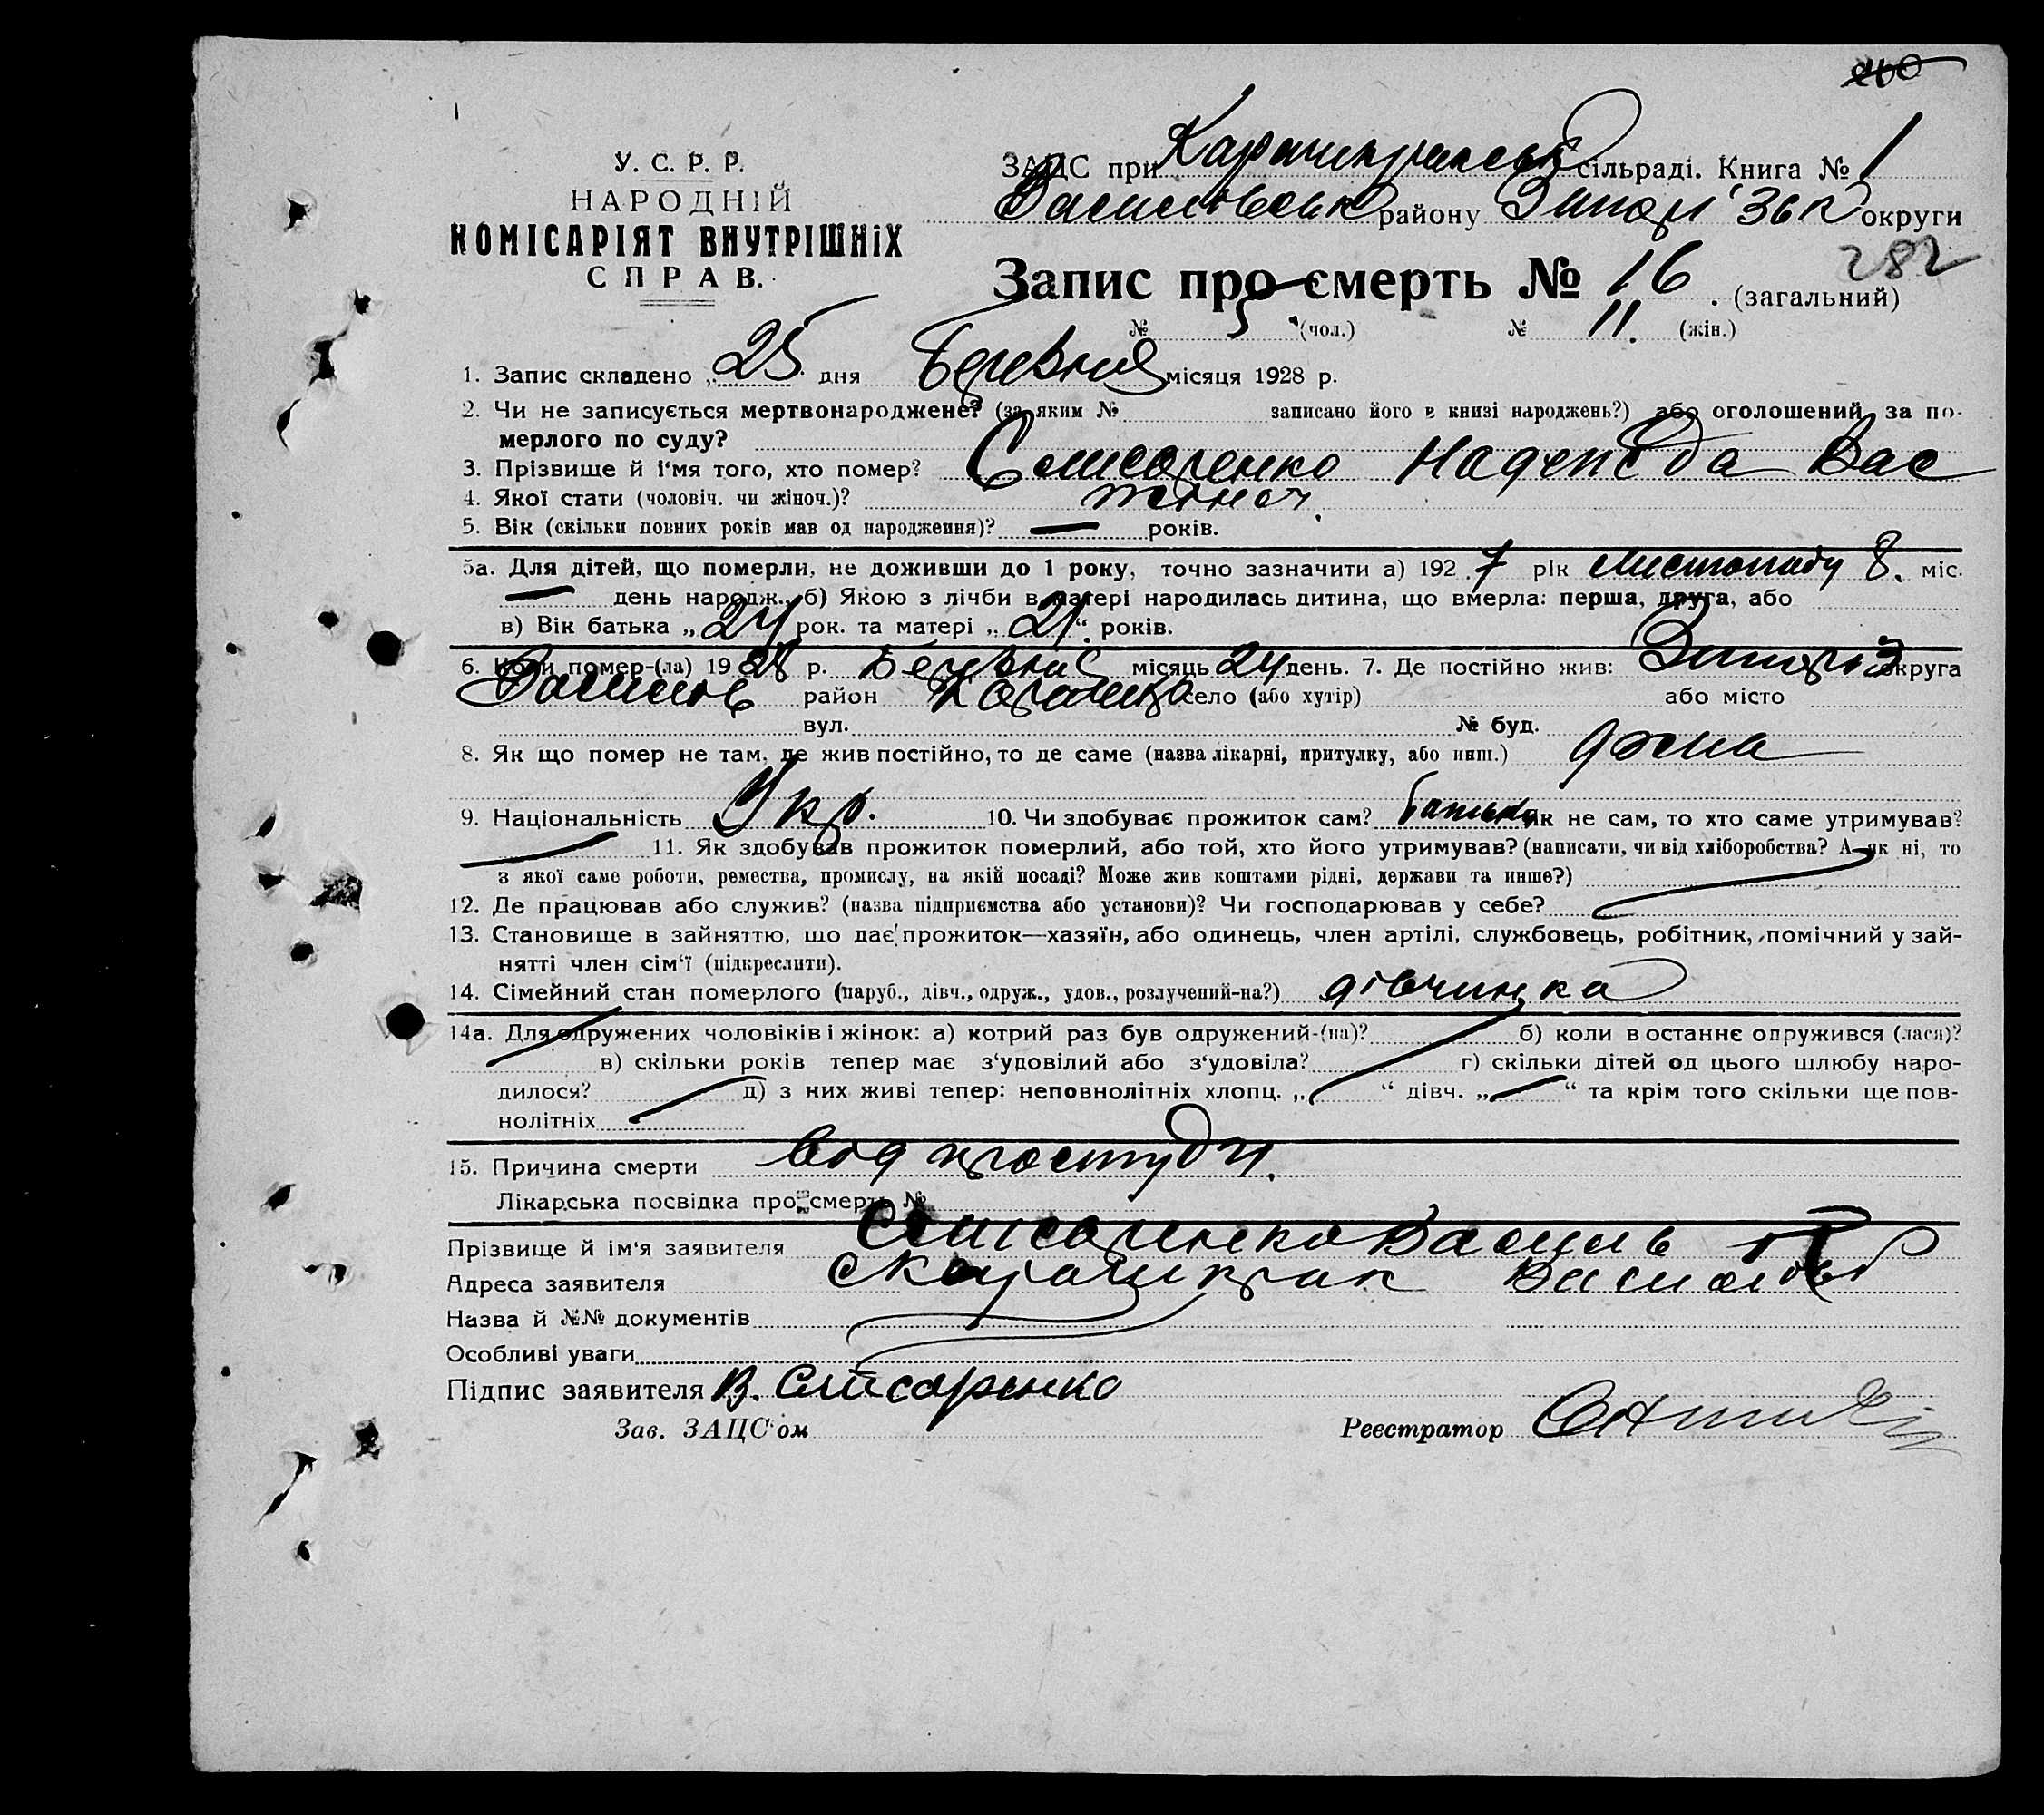 У. С. Р. Р.
НАРОДНІЙ
КОМІСАРІЯТ ВНУТРІШНІХ
СПРАВ.
ЗАЦС при сільраді. Книга № 1
району округи
282
Запис про смерть № 16. (загальний)
№ 5 (чол.) № 11. (жін.)
1. Запис складено „ 25 дня Березня місяця 1928 р.
2. Чи не записується мертвонароджене? (за яким № записано його в книзі народжень?) або оголошений за по-
мерлого по суду?
3. Прізвище й і'мя того, хто помер? Слисаренко Надежда Вас
4. Якої стати (чоловіч. чи жіноч.)? жіноч.
5. Вік (скільки повних років мав од народження)? — років.
5а. Для дітей, що померли, не доживши до 1 року, точно зазначити а) 192 7 рік Листопаду 8. міс.
— день народж., б) Якою з лічби в матері народилась дитина, що вмерла: перша, друга, або
в) Вік батька „ 24 рок. та матері „ 21 “ років.
6. Коли помер-(ла) 19 28 р. Березня місяць 24 день. 7. Де постійно жив: округа
район село (або хутір) або місто
вул. № буд.
8. Як що помер не там, де жив постійно, то де саме (назва лікарні, притулку, або инш.) дома
9. Національність Укр. 10. Чи здобуває прожиток сам? Як не сам, то хто саме утримував?
11. Як здобував прожиток померлий, або той, хто його утримував? (написати, чи від хліборобства? А як ні, то
з якої саме роботи, ремества, промислу, на якій посаді? Може жив коштами рідні, держави та инше?)
12. Де працював або служив? (назва підприємства або установи)? Чи господарював у себе?
13. Становище в зайняттю, що дає прожиток—хазяїн, або одинець, член артілі, службовець, робітник, помічний у зай-
нятті член сім'ї (підкреслити).
14. Сімейний стан померлого (паруб., дівч., одруж., удов., розлучений-на?) дівчинка
14а. Для одружених чоловіків і жінок: а) котрий раз був одружений-(на)? б) коли в останнє одружився (лася)?
в) скільки років тепер має з'удовілий або з'удовіла? г) скільки дітей од цього шлюбу наро-
дилося? д) з них живі тепер: неповнолітніх хлопц. „ “ дівч. „ — “ та крім того скільки ще пов-
нолітніх
15. Причина смерти від простуди.
Лікарська посвідка про смерть №
Прізвище й ім'я заявителя Слисаренко Василь
Адреса заявителя
Назва й №№ документів
Особливі уваги
Підпис заявителя В. Слисаренко
Зав. ЗАЦС'ом Реєстратор